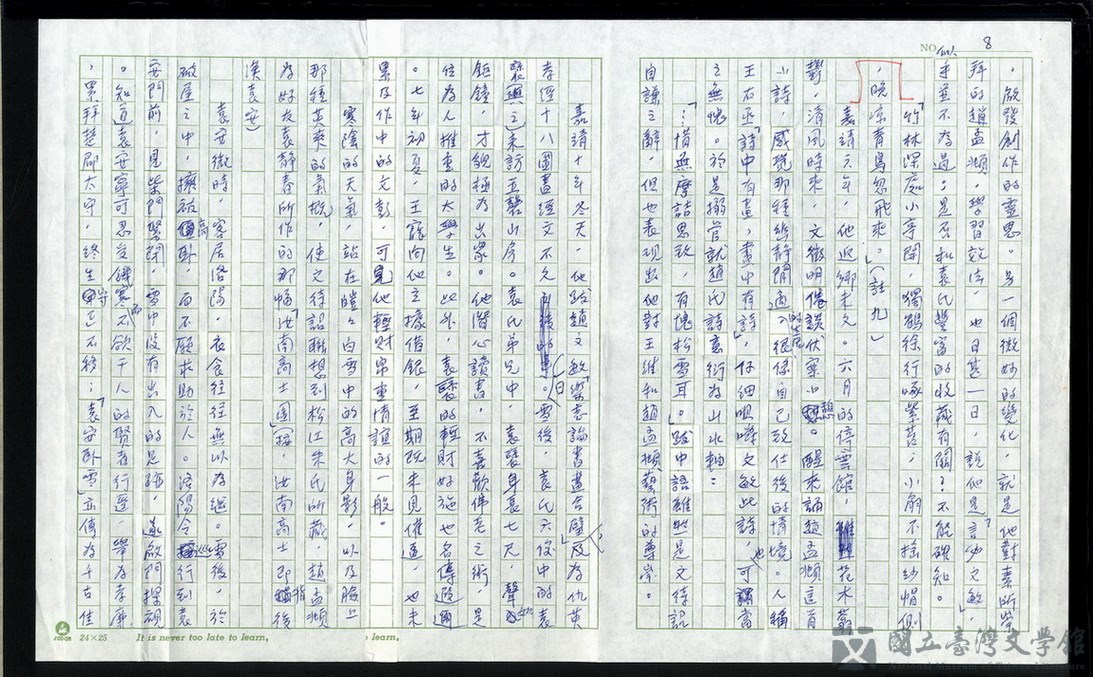 NO. 8
，啟發創作的靈思。另一個微妙的變化，就是他對素所崇
拜的趙孟頫，學習效法，也日甚一日，說他是「言必文敏」，
似並不為過；是否和袁氏豐富的收藏有關？不能確知。
「竹林深處小亭開，獨鶴徐行啄紫苔；小扇不搖紗帽側
，晚涼青鳥忽飛來。」（註九）
嘉靖元年，他返鄉未久。六月的停雲館，花木蓊
鬱，清風時來，文徵明倦讀伏案小憩。醒來誦趙孟頫這首
小詩，感覺那種悠靜閒適的意，很像自己致仕後的情境。人稱
王右丞「詩中有畫，畫中有詩」，仔細咀嚼文敏此詩，也可謂當
之無愧。於是搦管就趙氏詩意衍為山水軸：
「…惜無摩詰思致，有愧松雪耳。」跋中語雖然是文待詔
自謙之辭，但也表現出他對王維和趙孟頫藝術的尊崇。
嘉靖十年冬天，他跋趙文敏
孝經十八圖畫經文不久，（日）雪後，袁氏六俊中的袁
褧來訪玉磬山房。袁氏弟兄中，袁褧身長七尺，聲如
鉅鐘，才貌極為出眾。他潛心讀書，不喜歡佛老之術，是
位為人推重的太學生。此外，袁褧的輕財好施也名傳遐邇
。七年初夏，王寵向他立據借銀，至期既未見催逼，也未
累及作中的文彭，可見他輕財帛重情誼的一般。
寒陰的天氣，站在皚皚白雪中的高大身影，以及臉上
那種英爽的氣概，使文待詔聯想到松江朱氏所藏，趙孟頫
為好友袁靜春所作的那幅「汝南高士圖」（按，汝南高士即指後
漢袁安）
袁安微時，客居洛陽，衣食往往無以為繼。雪後，於
破屋之中，擁被高臥，而不願求助於人。洛陽令巡行到袁
安門前，見柴門緊閉，雪中沒有出入的足跡，遂啟門探視
。知道袁安寧可忍受饑寒而不欲干人的賢者行逕，舉為孝廉
，累拜楚郡太守，終生守正不移；「袁安臥雪」亦傳為千古佳
24×25 It is never too late to learn.
o learn.
國立臺灣文學館